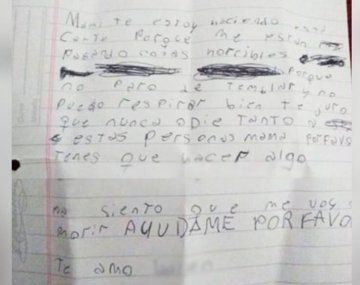 Mami te estoy haciendo esta
Carta Porque me estan
Pasando cosas horribles
Porque
no Paro de Temblar y no
Puedo respirar bien te juro
que nunca odie tanto a
estas Personas mama PorFavo
Tenes que hacer algo
siento que me voy
morir AYUDAME PORFAVO
Te amo